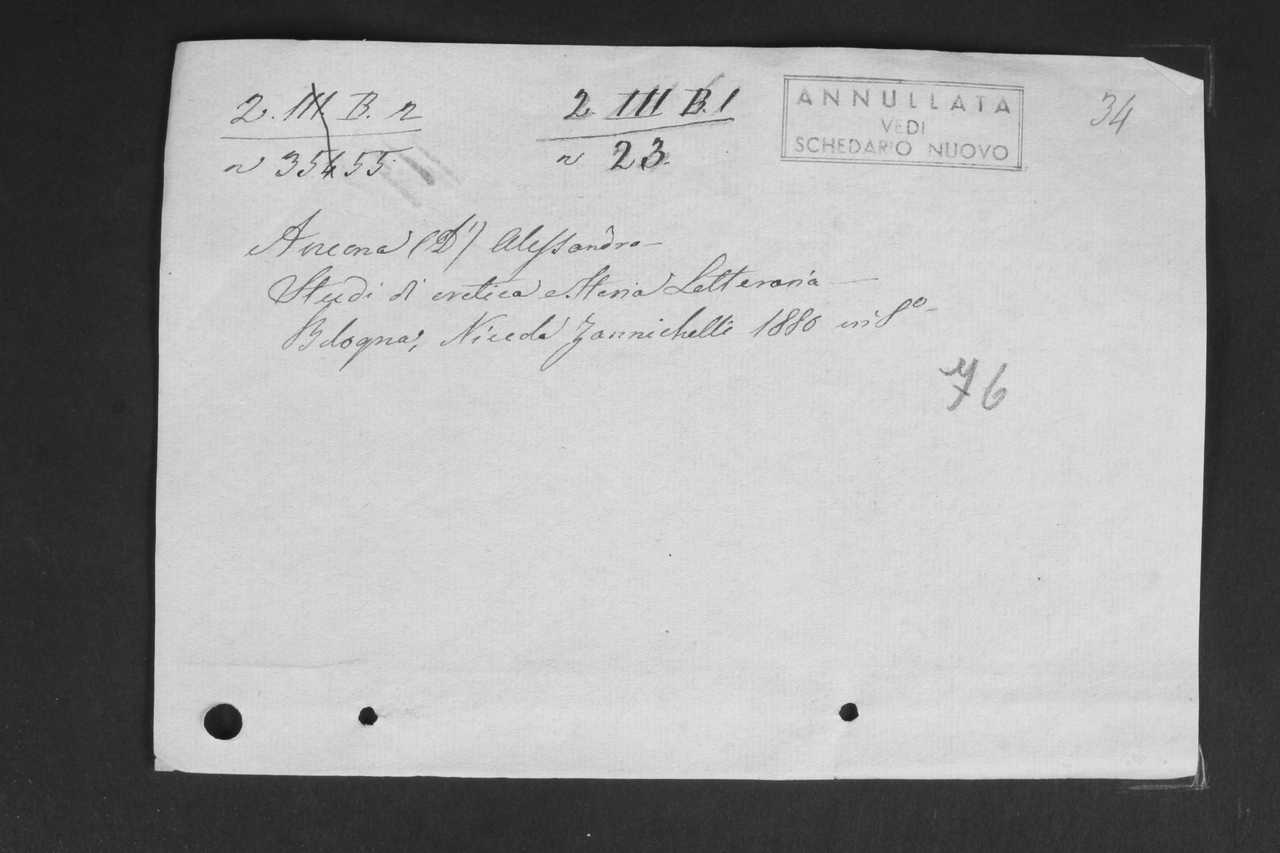 2. III. B. 2
n 35455
2 III B. 1
n 23.
ANNULLATA
VEDI
SCHEDARIO NUOVO
34
Ancona (D') Alessandro
Studi di critica e Storia Letteraria
Bologna, Nicola Zannichelli 1880 in 8º
76